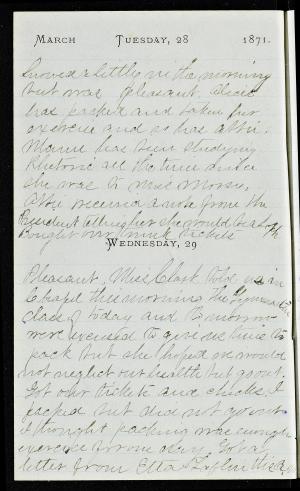 March Tuesday, 28 1871.
Snowed a little in the morning
but was pleasant.
has packed and taken her
exercise and so has Abbie.
Mame has been studying
Rhetoric all the time until
she was to Miss
Abbie received a note from the
President telling her she would be a Soph
Bought our trunk tickets
Wednesday, 29
Pleasant. Miss Clark told us in
Chapel this morning the Gymnastic
class of today and tomorrow
were excused to give us time to
pack but she hoped we would
not neglect our health but go out.
Got our tickets and checks. I
packed but did not go out
I thought packing was enough
exercise for one day. Got a
letter from Ella